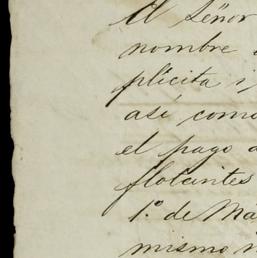 El Señor
nombre
plícita i
así como
el pago
flotantes
1.º de Ma
mismo